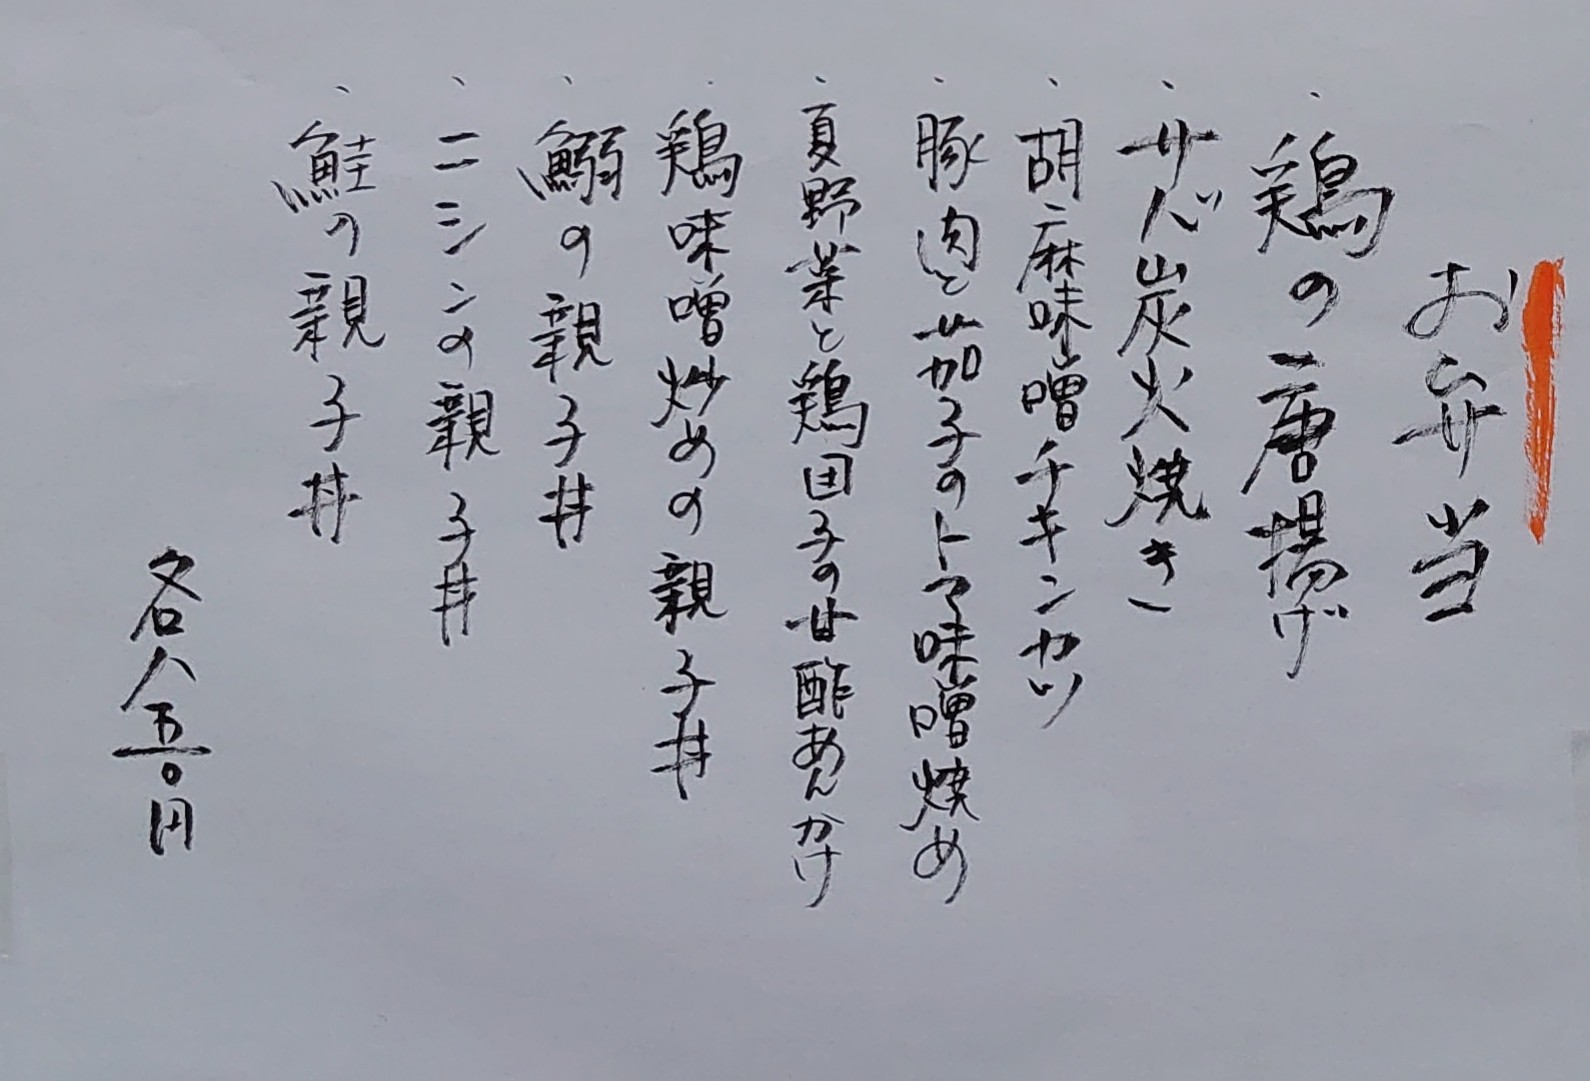 お弁当
、鶏の唐揚げ
、サバ炭火焼き
、胡麻味噌チキンカツ
、豚肉と茄子のトマ味噌焼め
、夏野菜と鶏団子の甘酢あんかけ
、鶏味噌炒めの親子丼
、鰯の親子丼
、ニシンの親子丼
、鮭の親子丼
各八五〇円